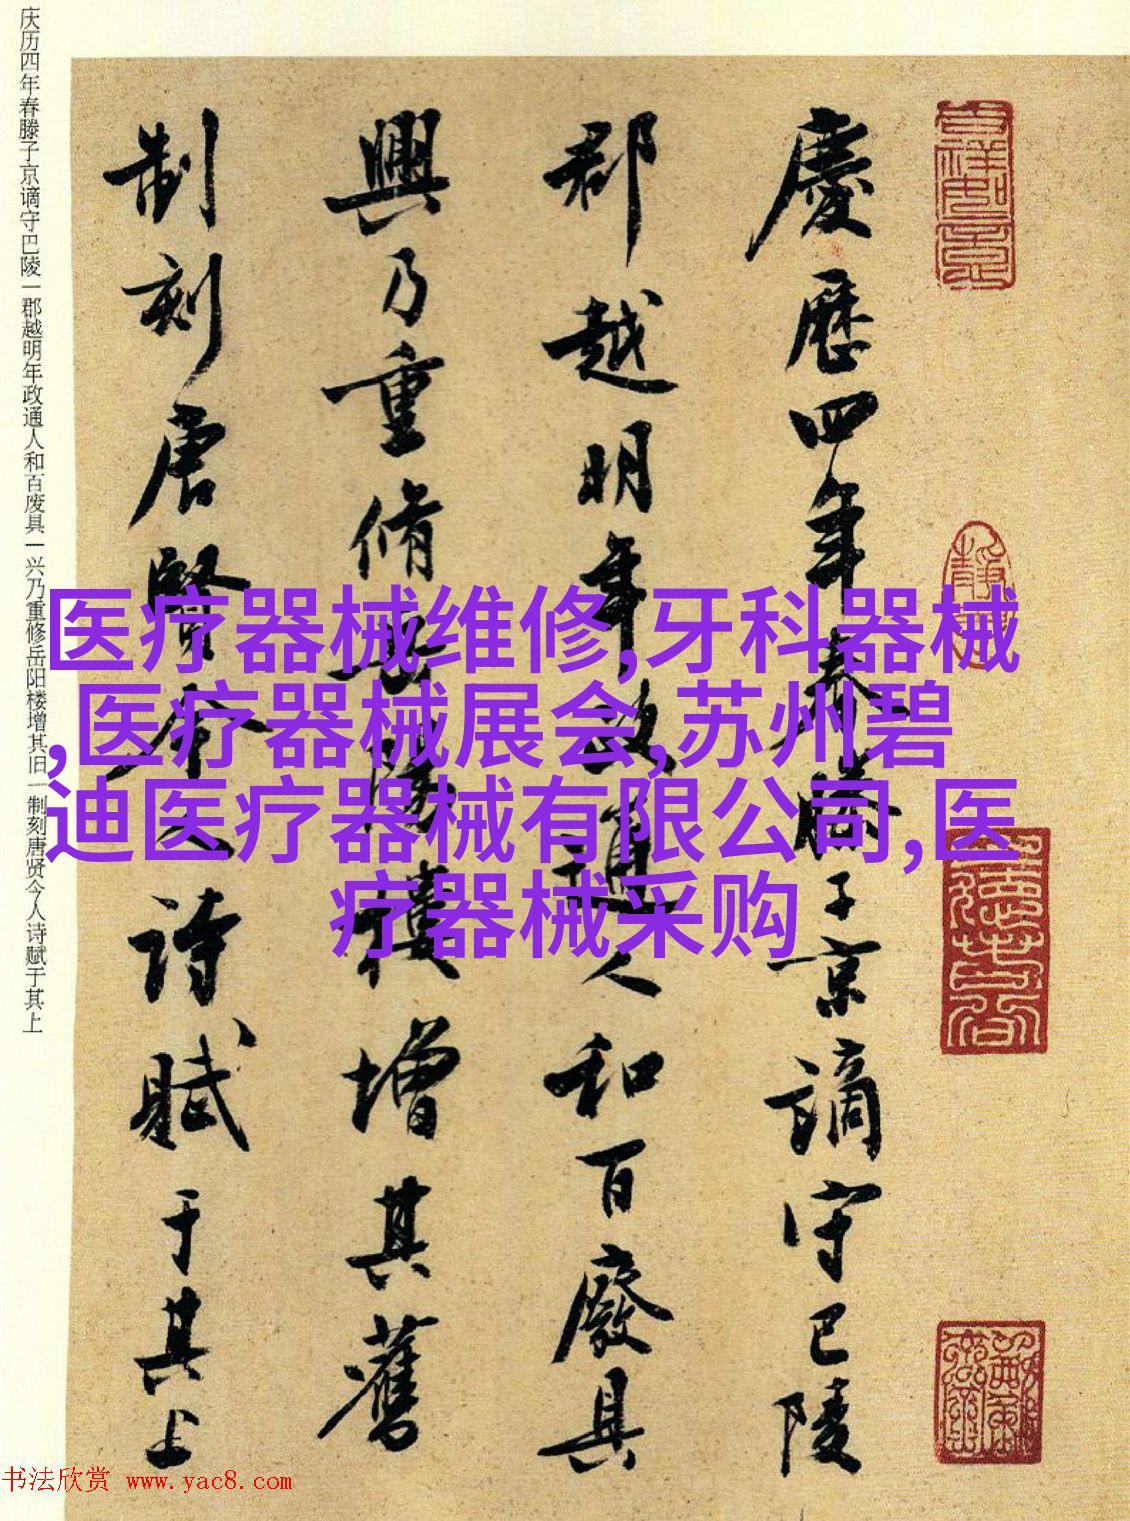 慶歷四年春滕子京謫守巴陵
郡越明年政通人和百廢具
興乃重脩岳陽樓增其舊
制刻唐賢今人詩賦于其上
庆历四年春滕子京谪守巴陵一郡越明年政通人和百废具一兴乃重修岳阳楼增其旧一制刻唐贤今人诗赋于其上
医疗器械维修,牙科器械
,医疗器械展会,苏州碧
迪医疗器械有限公司,医
疗器械采购
书法欣赏 www.yac8.com